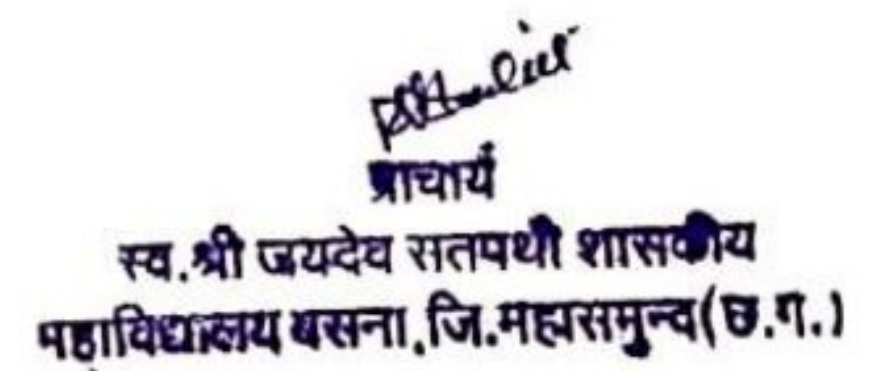 प्राचार्य
स्व.श्री जयदेव सतपथी शासकीय
महाविद्यालय बसना.जि.महासमुन्द(छ.ग.)